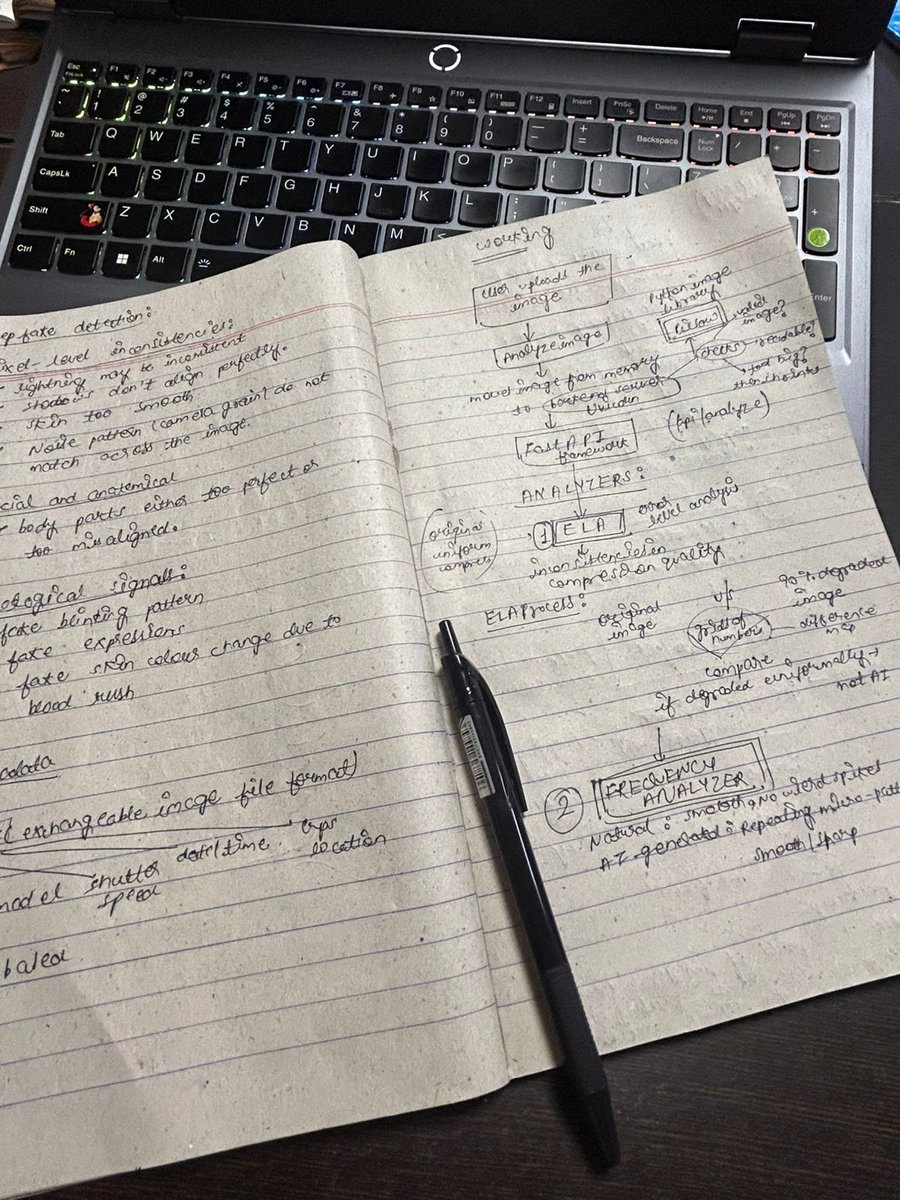 Esc F1 F2 F3 F4 F5 F6 F7 F8 F9 F10 F11 F12 Insert PrtSc Delete Home End PgUp PgDn
FnLock
~ ! @ # $ % ^ & * ( ) — +
1 2 3 4 5 6 7 8 9 0 = Backspace Num Lock / * -
Tab Q W E R T Y U I O P
CapsLk A S D F G H J K L
Shift Z X C V B N M
Ctrl Fn Alt
+
Enter
ep fake detection:
ixel-level inconsistencies:
lightning may to inconsistent
shadows don't align perfectly.
skin too smooth
Noise pattern (camera grain) do not
match across the image.
cial and anatomical
body parts either too perfect or
too misaligned.
ological signals:
fake blinking pattern
fake expressions
fake skin colour change due to
blood rush
adata
(exchangeable image file format)
model shutter speed date/time. location
based
working
User uploads the
image
Analyze image
Python image
library
Pillow
checks
valid
image?
readable?
too big?
then shrinks
moves image from memory
to backend server
Uvicorn
Fast API
framework
(api/analyze)
ANALYZERS:
1 ELA error
level analysis
original
uniform
compress
inconsistencies in
compression quality
ELA Process:
original
image
v/s
90% degraded
image
grid of
numbers
difference
map
compare
if degraded uniformally →
not AI
2 FREQUENCY
ANALYZER
Natural: smooth, No weird spikes
AI-generated: Repeating micro-patt
smooth/sharp